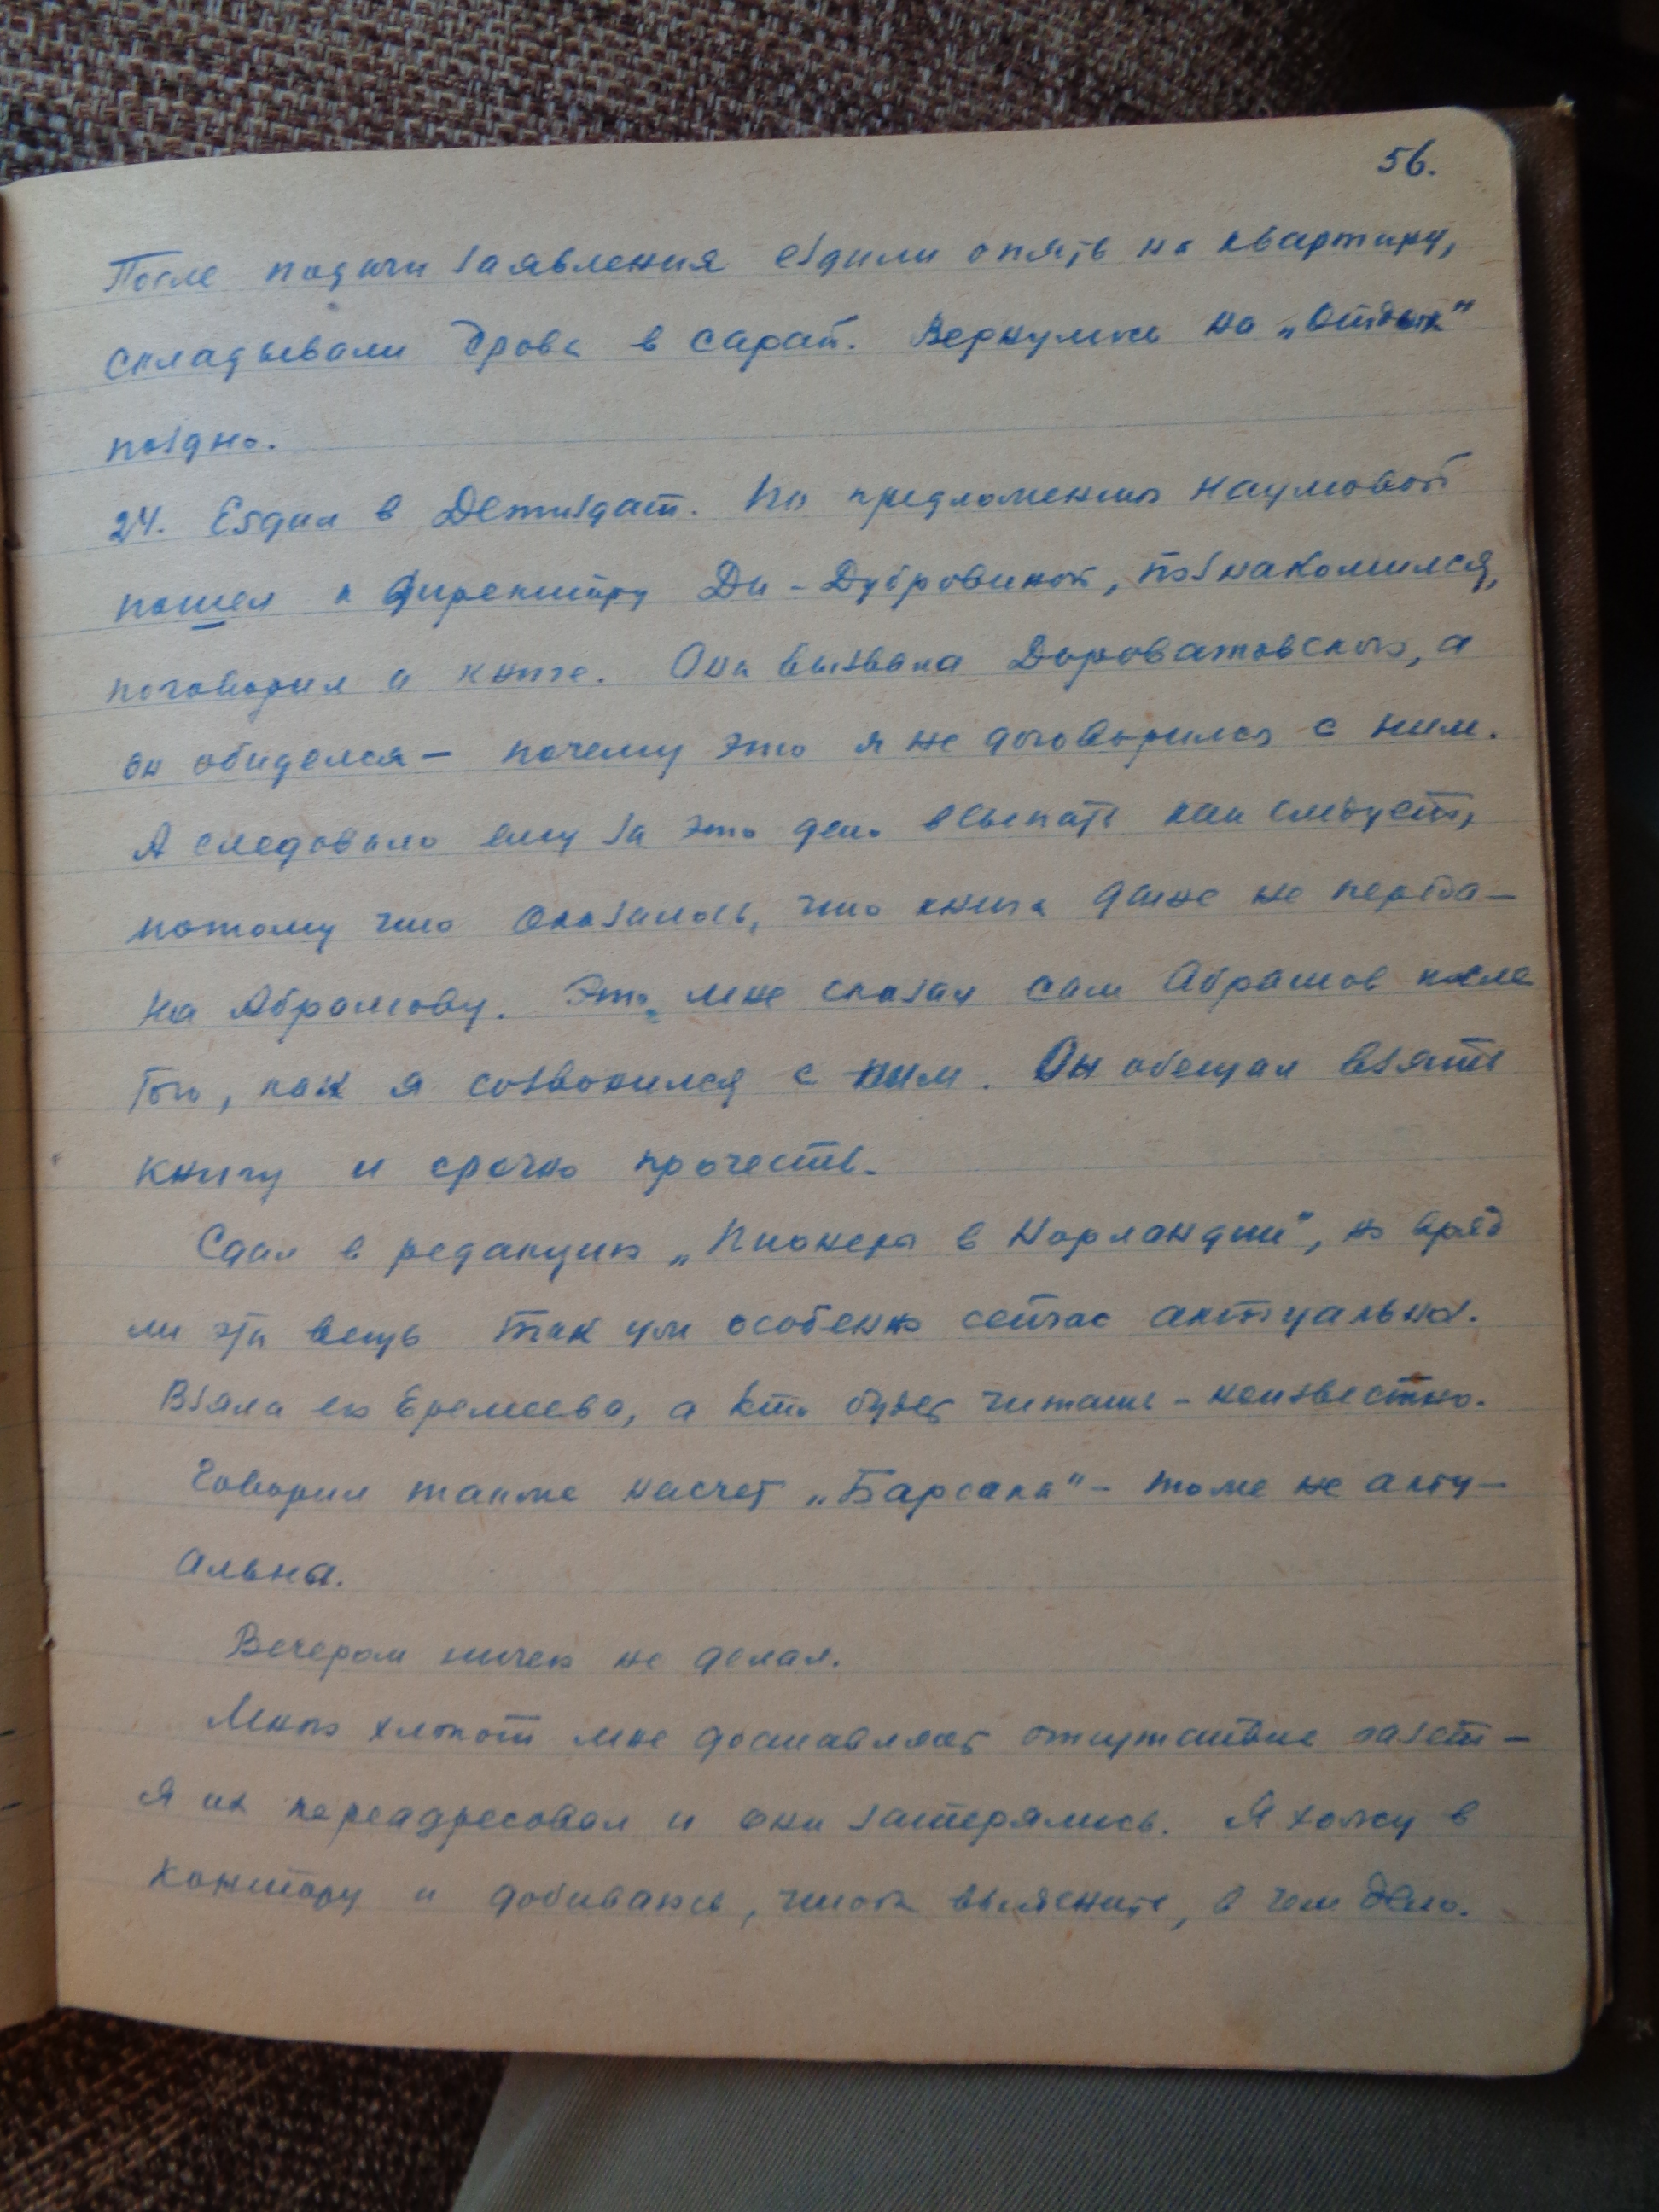 56.
После подачи заявления ездили опять на квартиру,
складывали дрова в сарай. Вернулись на „Отдых"
поздно.
24. Ездил в Детиздат. По предложению Наумовой
пошел к директору Ди-Дубровиной, познакомился,
поговорил о книге. Она вызвала Дороватовского, а
он обиделся — почему это я не договорился с ним.
А следовало ему за это дело всыпать как следует,
потому что оказалось, что книга даже не переда-
на Абрамову. Это мне сказал сам Абрамов после
того, как я созвонился с ним. Он обещал взять
книгу и срочно прочесть.
Сдал в редакцию „Пионеры в Норландии", но вряд
ли эта вещь так уж особенно сейчас актуальна.
Взяла ее Еремеева, а кто будет читать - неизвестно.
Говорил также насчет „Барсака" - тоже не акту-
альна.
Вечером ничего не делал.
Много хлопот мне доставляет отсутствие газет -
я их переадресовал и они затерялись. Я хожу в
контору и добиваюсь, чтоб выяснить, в чем дело.